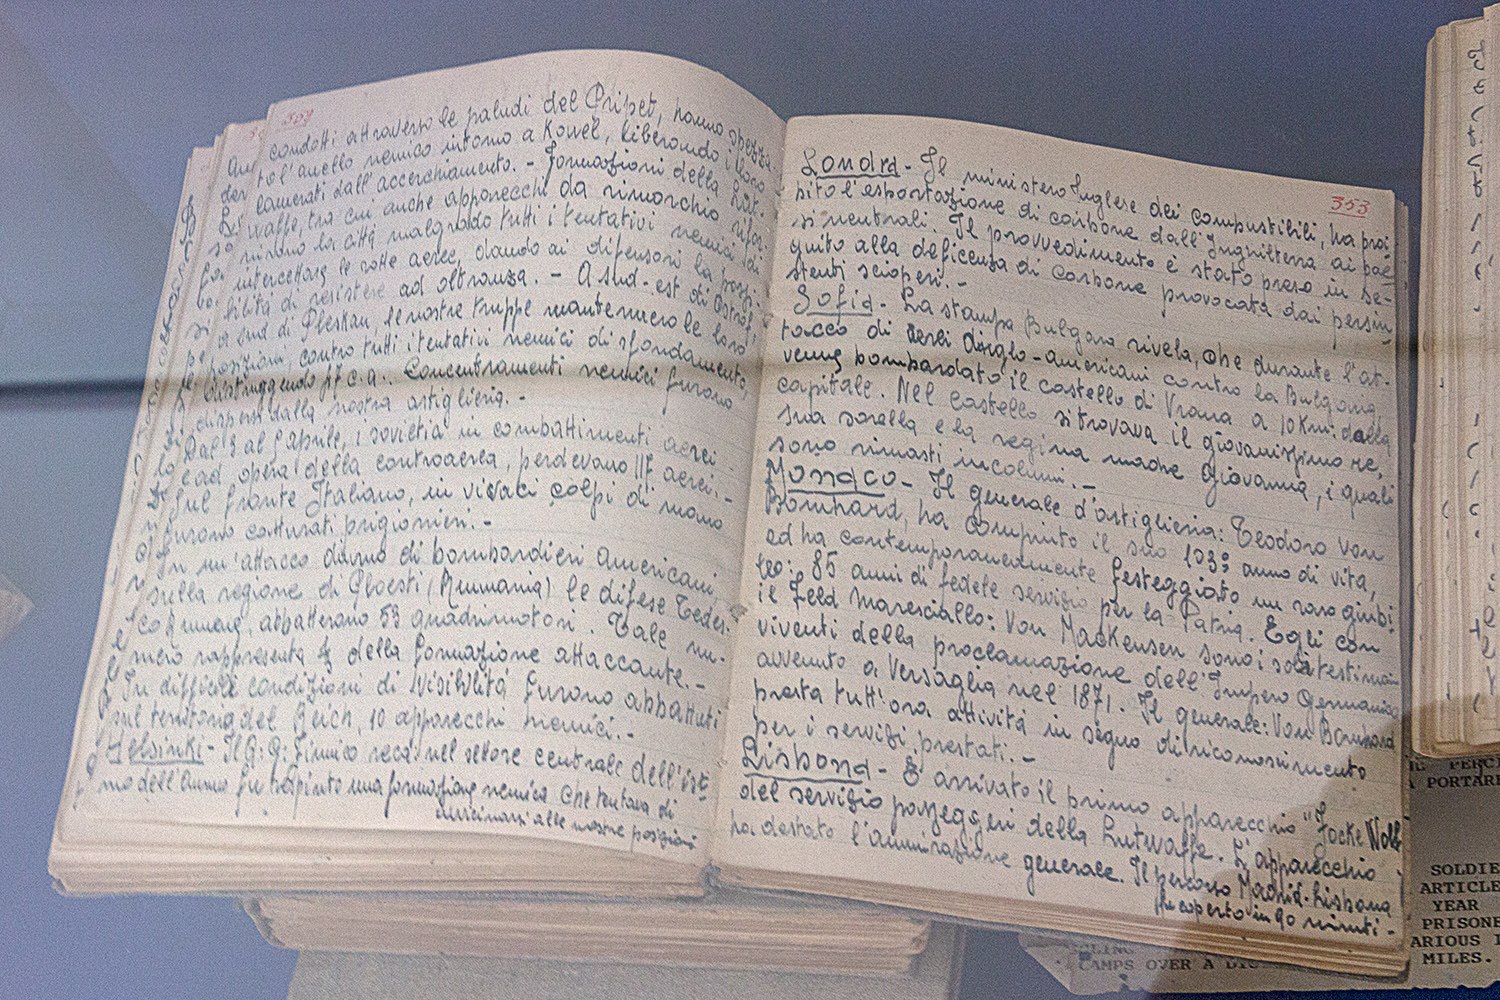 condotti attraverso le paludi del Pripet, hanno spezza
to l'anello nemico intorno a Kowel, liberando i loro
camerati dall'accerchiamento. - Formazioni della Luft-
waffe, tra cui anche apparecchi da rimorchio rifor-
nirono la città malgrado tutti i tentativi nemici di
intercettare le rotte aeree, dando ai difensori la possi-
bilità di resistere ad oltranza. - A sud-est di Ostrof,
a sud di Pleskau, le nostre truppe mantennero le loro
posizioni, contro tutti i tentativi nemici di sfondamento,
distruggendo 17 c.a.. Concentramenti nemici furono
dispersi dalla nostra artiglieria. -
Dal 3 al 5 aprile, i sovietici in combattimenti aerei
e ad opera della controaerea, perdevano 117 aerei. -
Sul fronte Italiano, in vivaci colpi di mano
furono catturati prigionieri. -
In un'attacco diurno di bombardieri Americani
sulla regione di Ploesti (Rumania) le difese Tedes-
co Rumene, abbatterono 53 quadrimotori. Tale nu-
mero rappresenta della formazione attaccante. -
In difficili condizioni di visibilità furono abbattuti
sul territorio del Reich, 10 apparecchi nemici. -
Helsinki - Il Q: G: Finnico reca: nel settore centrale dell'ist
mo dell'Aunus fu respinto una formazione nemica che tentava di
avvicinarsi alle nostre posizioni
353
Londra - Il ministero Inglese dei combustibili, ha proi
bito l'esportazione di carbone dall'Inghilterra ai pae
si neutrali. Il provvedimento è stato preso in se-
guito alla deficenza di carbone provocata dai persi
stenti scioperi. -
Sofia - La stampa Bulgara rivela, che durante l'at-
tacco di aerei Anglo-americani contro la Bulgaria,
venne bombardato il castello di Vrana a 10 Km. dalla
capitale. Nel castello si trovava il giovanissimo re,
sua sorella e la regina madre Giovanna, i quali
sono rimasti incolumi. -
Monaco - Il generale d'artiglieria: Teodoro Von
Bomhard, ha compiuto il suo 103º anno di vita,
ed ha contemporaneamente festeggiato un raro giubi
leo: 85 anni di fedele servizio per la Patria. Egli con
il Feld Maresciallo: Von Mackensen sono i soli testimoni
viventi della proclamazione dell'Impero Germanico
avvenuto a Versaglia nel 1871. Il generale: Von Bomhard
presta tutt'ora attività in segno di riconoscimento
per i servizi prestati. -
Lisbona - È arrivato il primo apparecchio "Focke Wolf
del servizio passeggeri della Lutwaffe. L'apparecchio
ha destato l'ammirazione generale. Il percorso Madrid-Lisbona
fu coperto in 90 minuti. -
PORTAR
SOLDIE
ARTICLE
YEAR
PRISONE
ARIOUS
MILES.
CAMPS OVER A